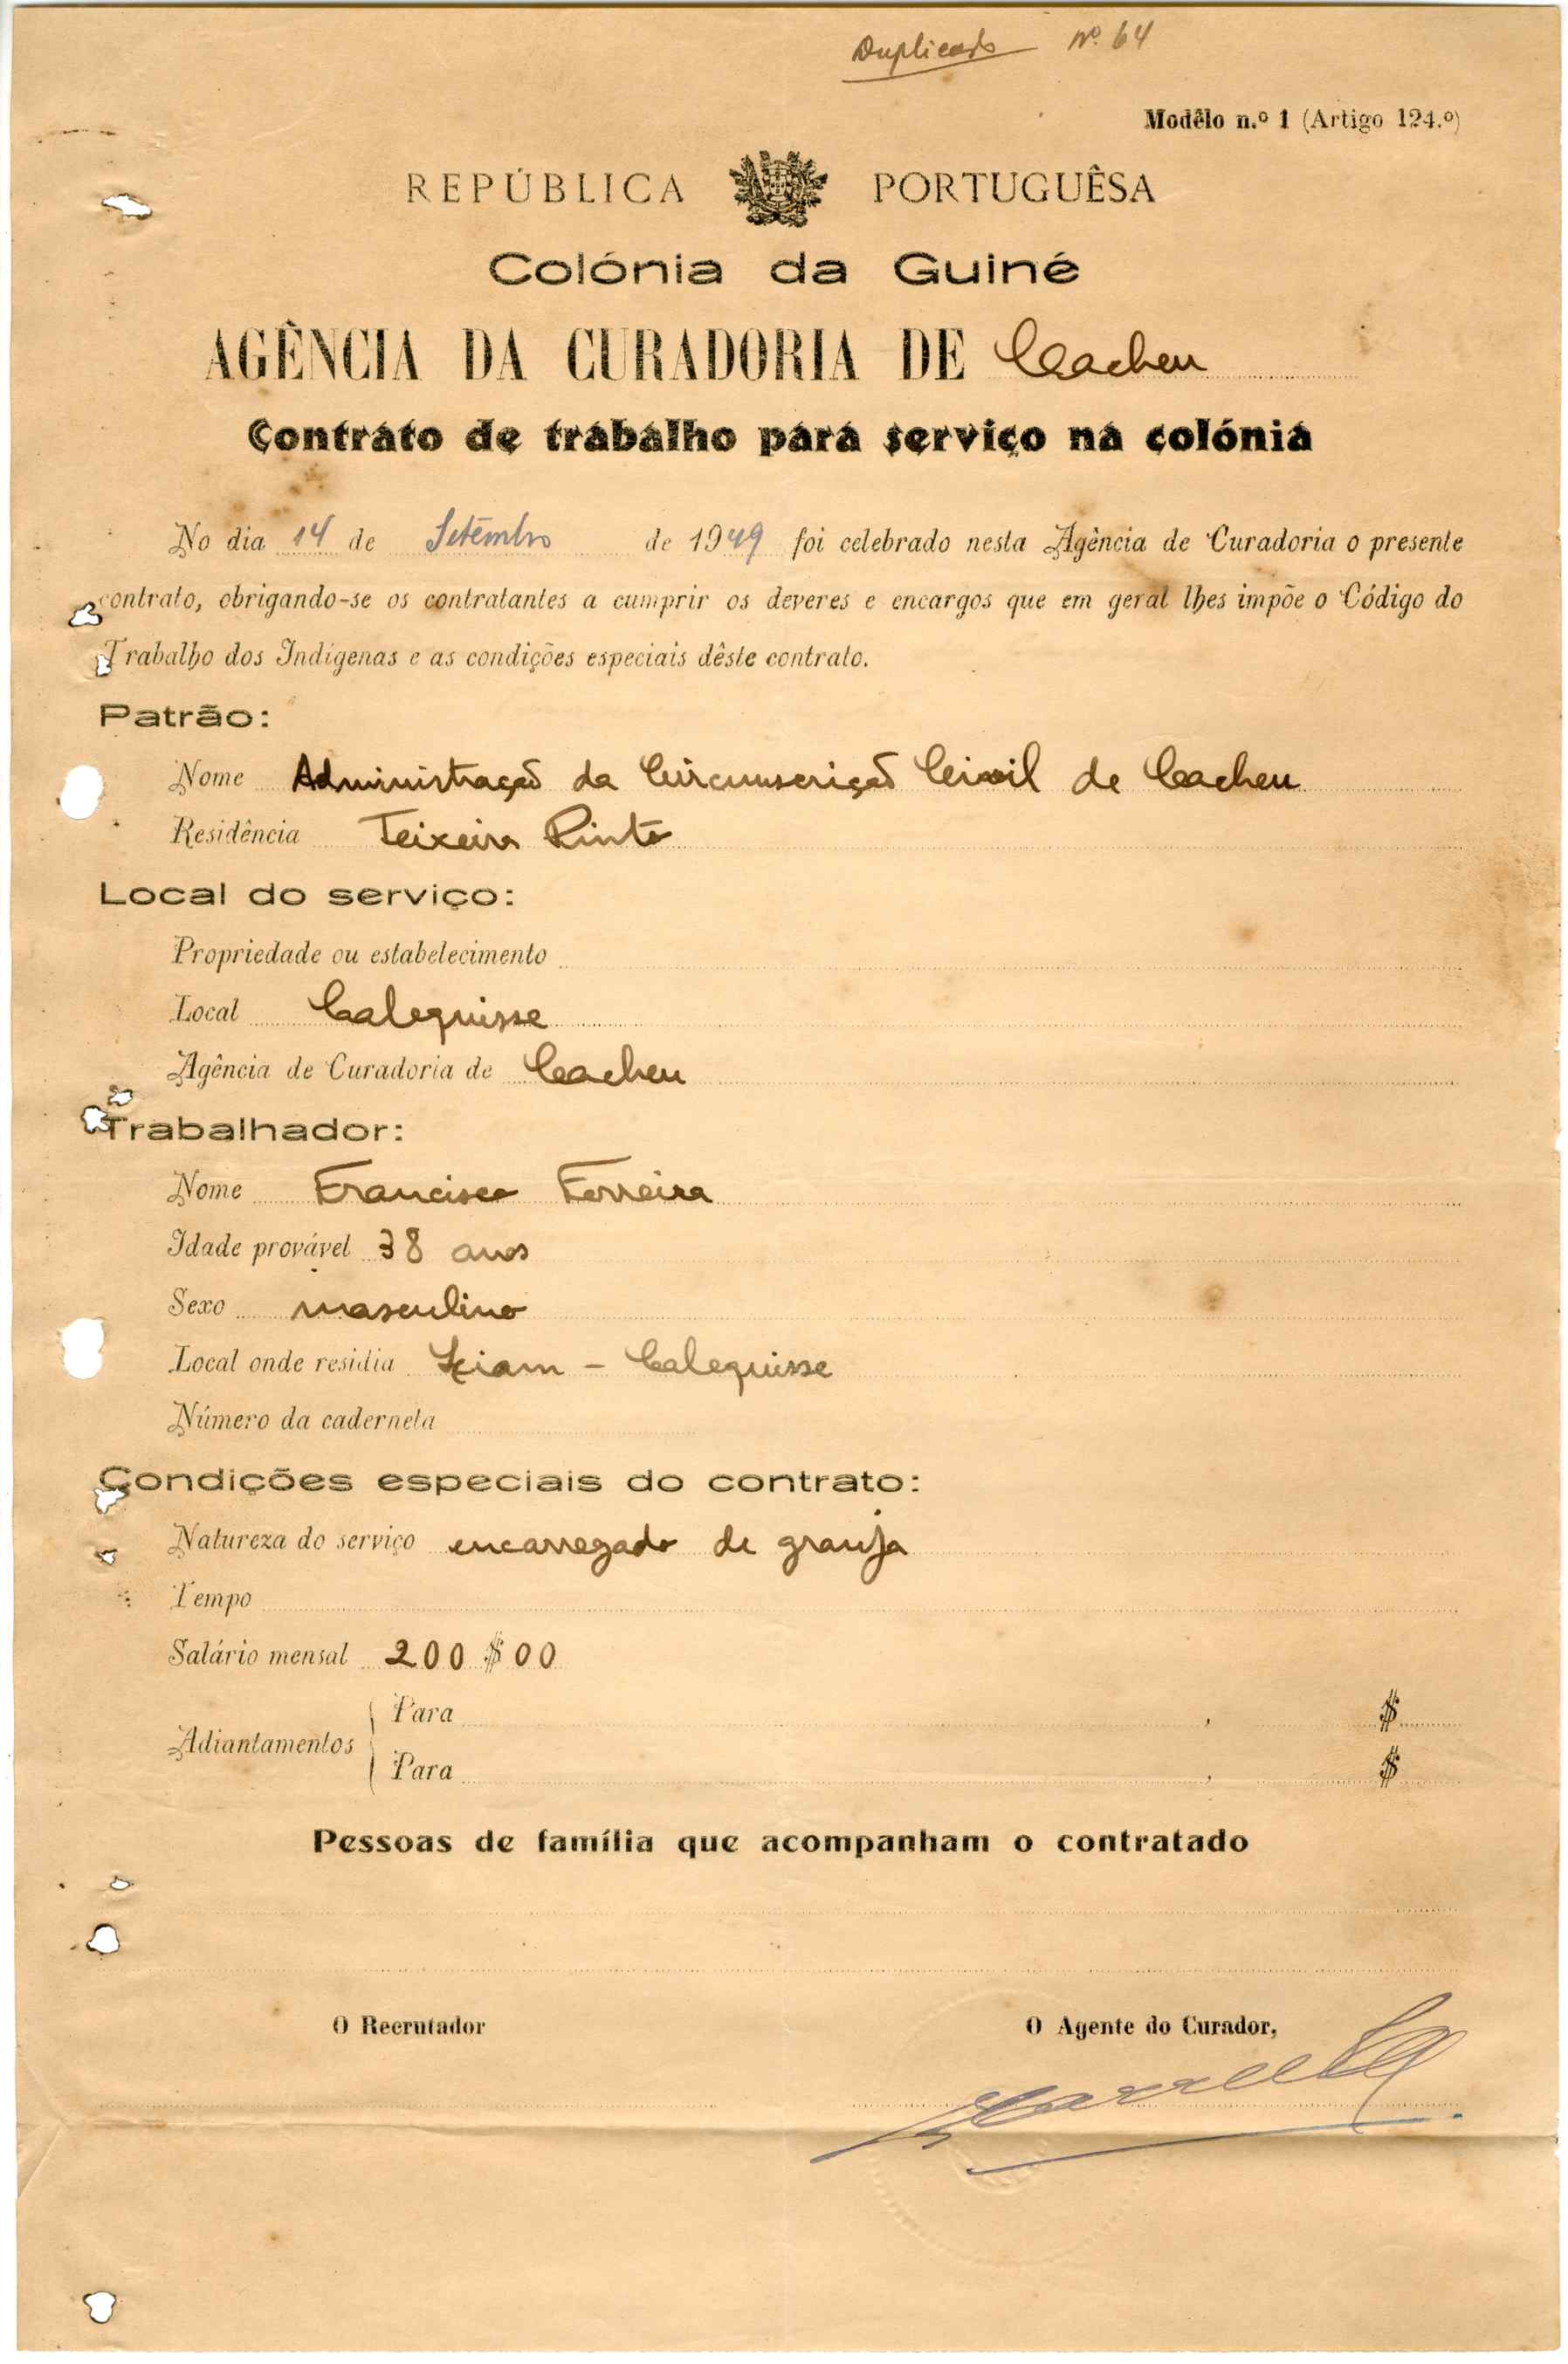 Duplicado Nº 64
Modêlo n.º 1 (Artigo 124.º)
REPÚBLICA PORTUGUÊSA
Colónia da Guiné
AGÊNCIA DA CURADORIA DE Cacheu
Contrato de trabalho para serviço na colónia
No dia 14 de Setembro de 1949 foi celebrado nesta Agência de Curadoria o presente
contrato, obrigando-se os contratantes a cumprir os deveres e encargos que em geral lhes impõe o Código do
Trabalho dos Indígenas e as condições especiais dêste contrato.
Patrão:
Nome Administração da Circunscrição Civil de Cacheu
Residência Teixeira Pinto
Local do serviço:
Propriedade ou estabelecimento
Local Calequisse
Agência de Curadoria de Cacheu
Trabalhador:
Nome Francisco Ferreira
Idade provável 38 anos
Sexo masculino
Local onde residia - Calequisse
Número da caderneta
Condições especiais do contrato:
Natureza do serviço encarregado de granja
Tempo
Salário mensal 200$00
Para , $
Adiantamentos
Para , $
Pessoas de família que acompanham o contratado
O Recrutador O Agente do Curador,